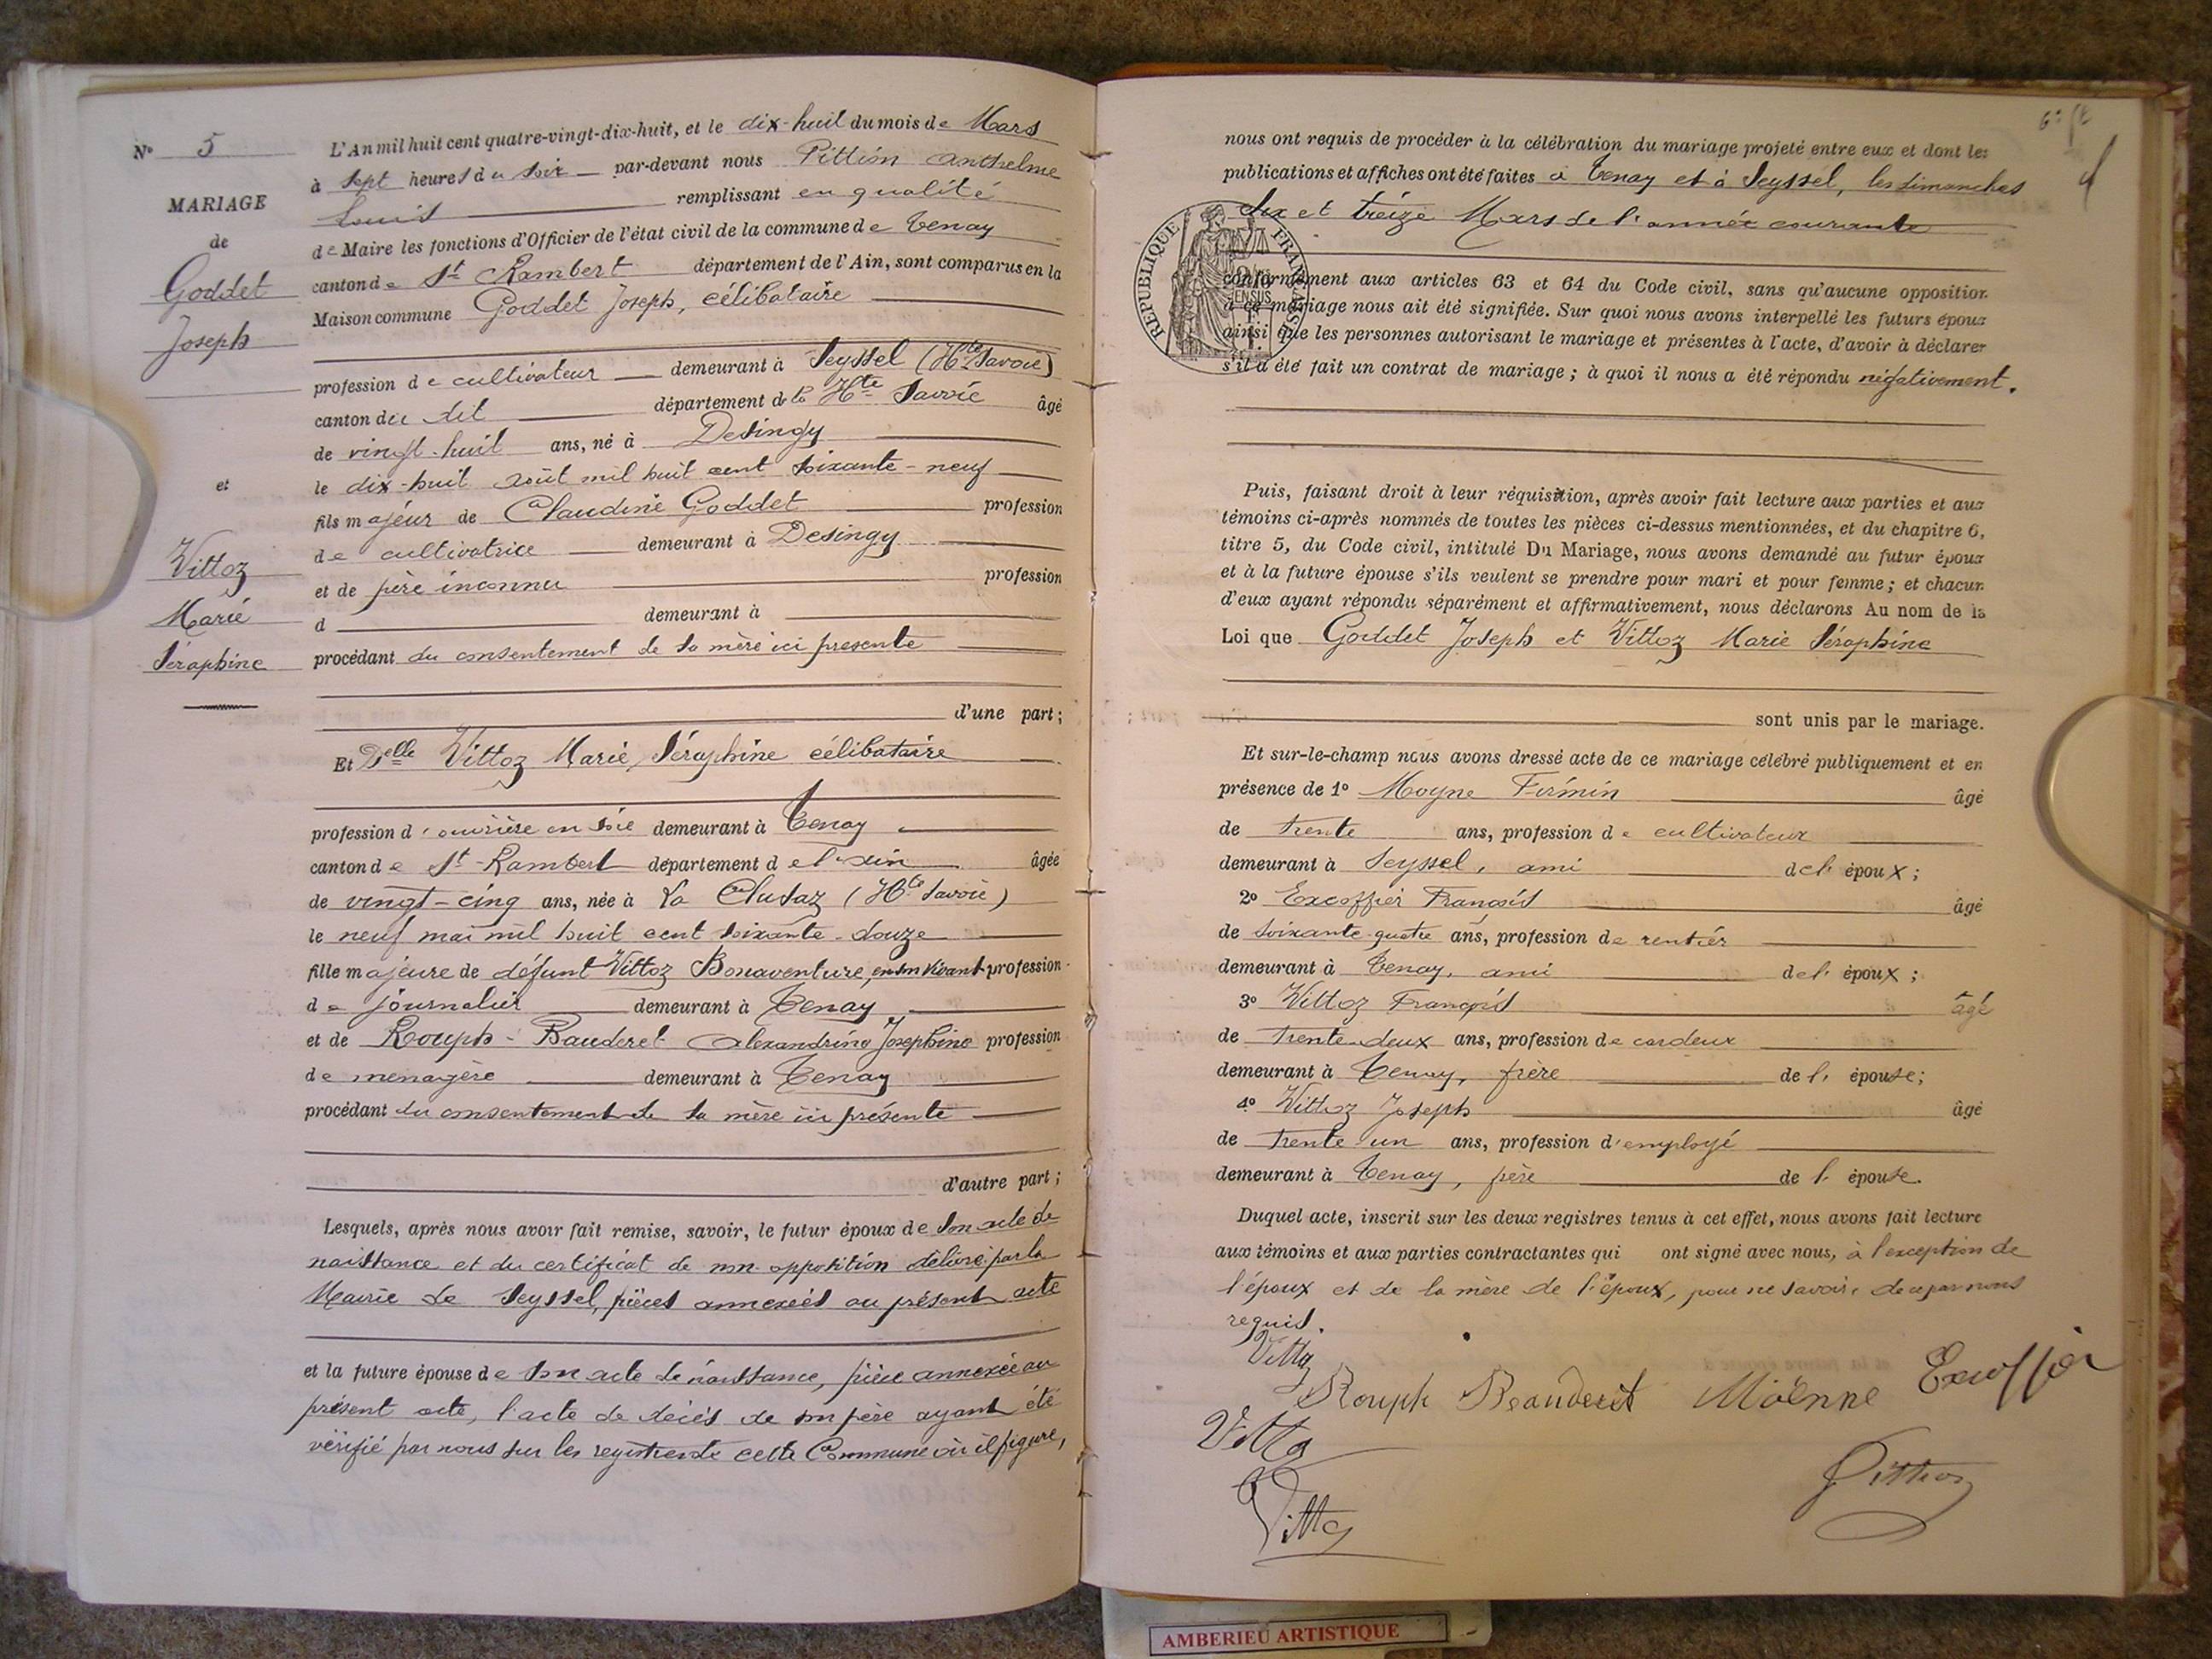 N° 5
MARIAGE
de
Goddet
Joseph
et
Vittoz
Marie
Séraphine
L'An mil huit cent quatre-vingt-dix-huit, et le dix-huit du mois de Mars
à sept heures du soir par-devant nous Pittion Anthelme
Louis remplissant en qualité
de Maire les fonctions d'Officier de l'état civil de la commune de Tenay
canton de St Rambert département de l'Ain, sont comparus en la
Maison commune Goddet Joseph, célibataire
profession de cultivateur demeurant à Seyssel (Hte Savoie)
canton du dit département de la Hte Savoie âgé
de vingt-huit ans, né à Desingy
le dix-huit août mil huit cent soixante-neuf
fils majeur de Claudine Goddet profession
de cultivatrice demeurant à Desingy
et de père inconnu profession
d demeurant à
procédant du consentement de sa mère ici présente
d'une part;
Et Delle Vittoz Marie Séraphine célibataire
profession d'ouvrière en soie demeurant à Tenay
canton de St-Rambert département de l'Ain âgée
de vingt-cinq ans, née à La Clusaz (Hte Savoie)
le neuf mai mil huit cent soixante-douze
fille majeure de défunt Vittoz Bonaventure, en son vivant profession
de journalier demeurant à Tenay
et de Rouph-Bauderet Alexandrine Josephine profession
de ménagère demeurant à Tenay
procédant du consentement de sa mère ici présente
d'autre part;
Lesquels, après nous avoir fait remise, savoir, le futur époux de son acte de
naissance et du certificat de non-opposition délivré par la
Mairie de Seyssel, pièces annexées au présent acte
et la future épouse de son acte de naissance, pièce annexée au
présent acte, l'acte de décès de son père ayant été
vérifié par nous sur les registres de cette Commune où il figure,
nous ont requis de procéder à la célébration du mariage projeté entre eux et dont les
publications et affiches ont été faites à Tenay et à Seyssel, les dimanches
six et treize Mars de l'année courante
RÉPUBLIQUE FRANÇAISE
conformément aux articles 63 et 64 du Code civil, sans qu'aucune opposition
à ce mariage nous ait été signifiée. Sur quoi nous avons interpellé les futurs époux
ainsi que les personnes autorisant le mariage et présentes à l'acte, d'avoir à déclarer
s'il a été fait un contrat de mariage; à quoi il nous a été répondu négativement.
Puis, faisant droit à leur réquisition, après avoir fait lecture aux parties et aux
témoins ci-après nommés de toutes les pièces ci-dessus mentionnées, et du chapitre 6,
titre 5, du Code civil, intitulé Du Mariage, nous avons demandé au futur époux
et à la future épouse s'ils veulent se prendre pour mari et pour femme; et chacun
d'eux ayant répondu séparément et affirmativement, nous déclarons Au nom de la
Loi que Goddet Joseph et Vittoz Marie Séraphine
sont unis par le mariage.
Et sur-le-champ nous avons dressé acte de ce mariage célébré publiquement et en
présence de 1° Moyne Firmin âgé
de trente ans, profession de cultivateur
demeurant à Seyssel, ami de l'époux;
2° Excoffier François âgé
de soixante-quatre ans, profession de rentier
demeurant à Tenay, ami de l'époux;
3° Vittoz François âgé
de trente-deux ans, profession de cardeur
demeurant à Tenay, frère de l'épouse;
4° Vittoz Joseph âgé
de trente-un ans, profession d'employé
demeurant à Tenay, frère de l'épouse.
Duquel acte, inscrit sur les deux registres tenus à cet effet, nous avons fait lecture
aux témoins et aux parties contractantes qui ont signé avec nous, à l'exception de
l'époux et de la mère de l'époux, pour ne savoir, de ce par nous
requis.
Vittoz
Rouph Beauderet Moënne Excoffier
Vittoz
Vittoz
Pittion
AMBERIEU ARTISTIQUE